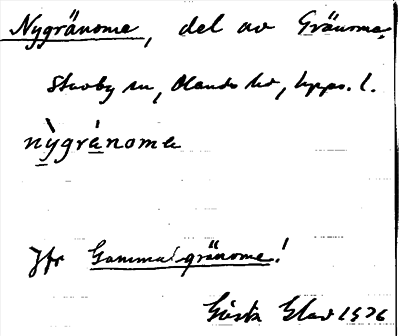 Nygränome, del av Gränome,
Stavby sn, Olands hd, Upps. l.
nỳgrànoma
Jfr Gammalgränome!
Gösta Elav 1976